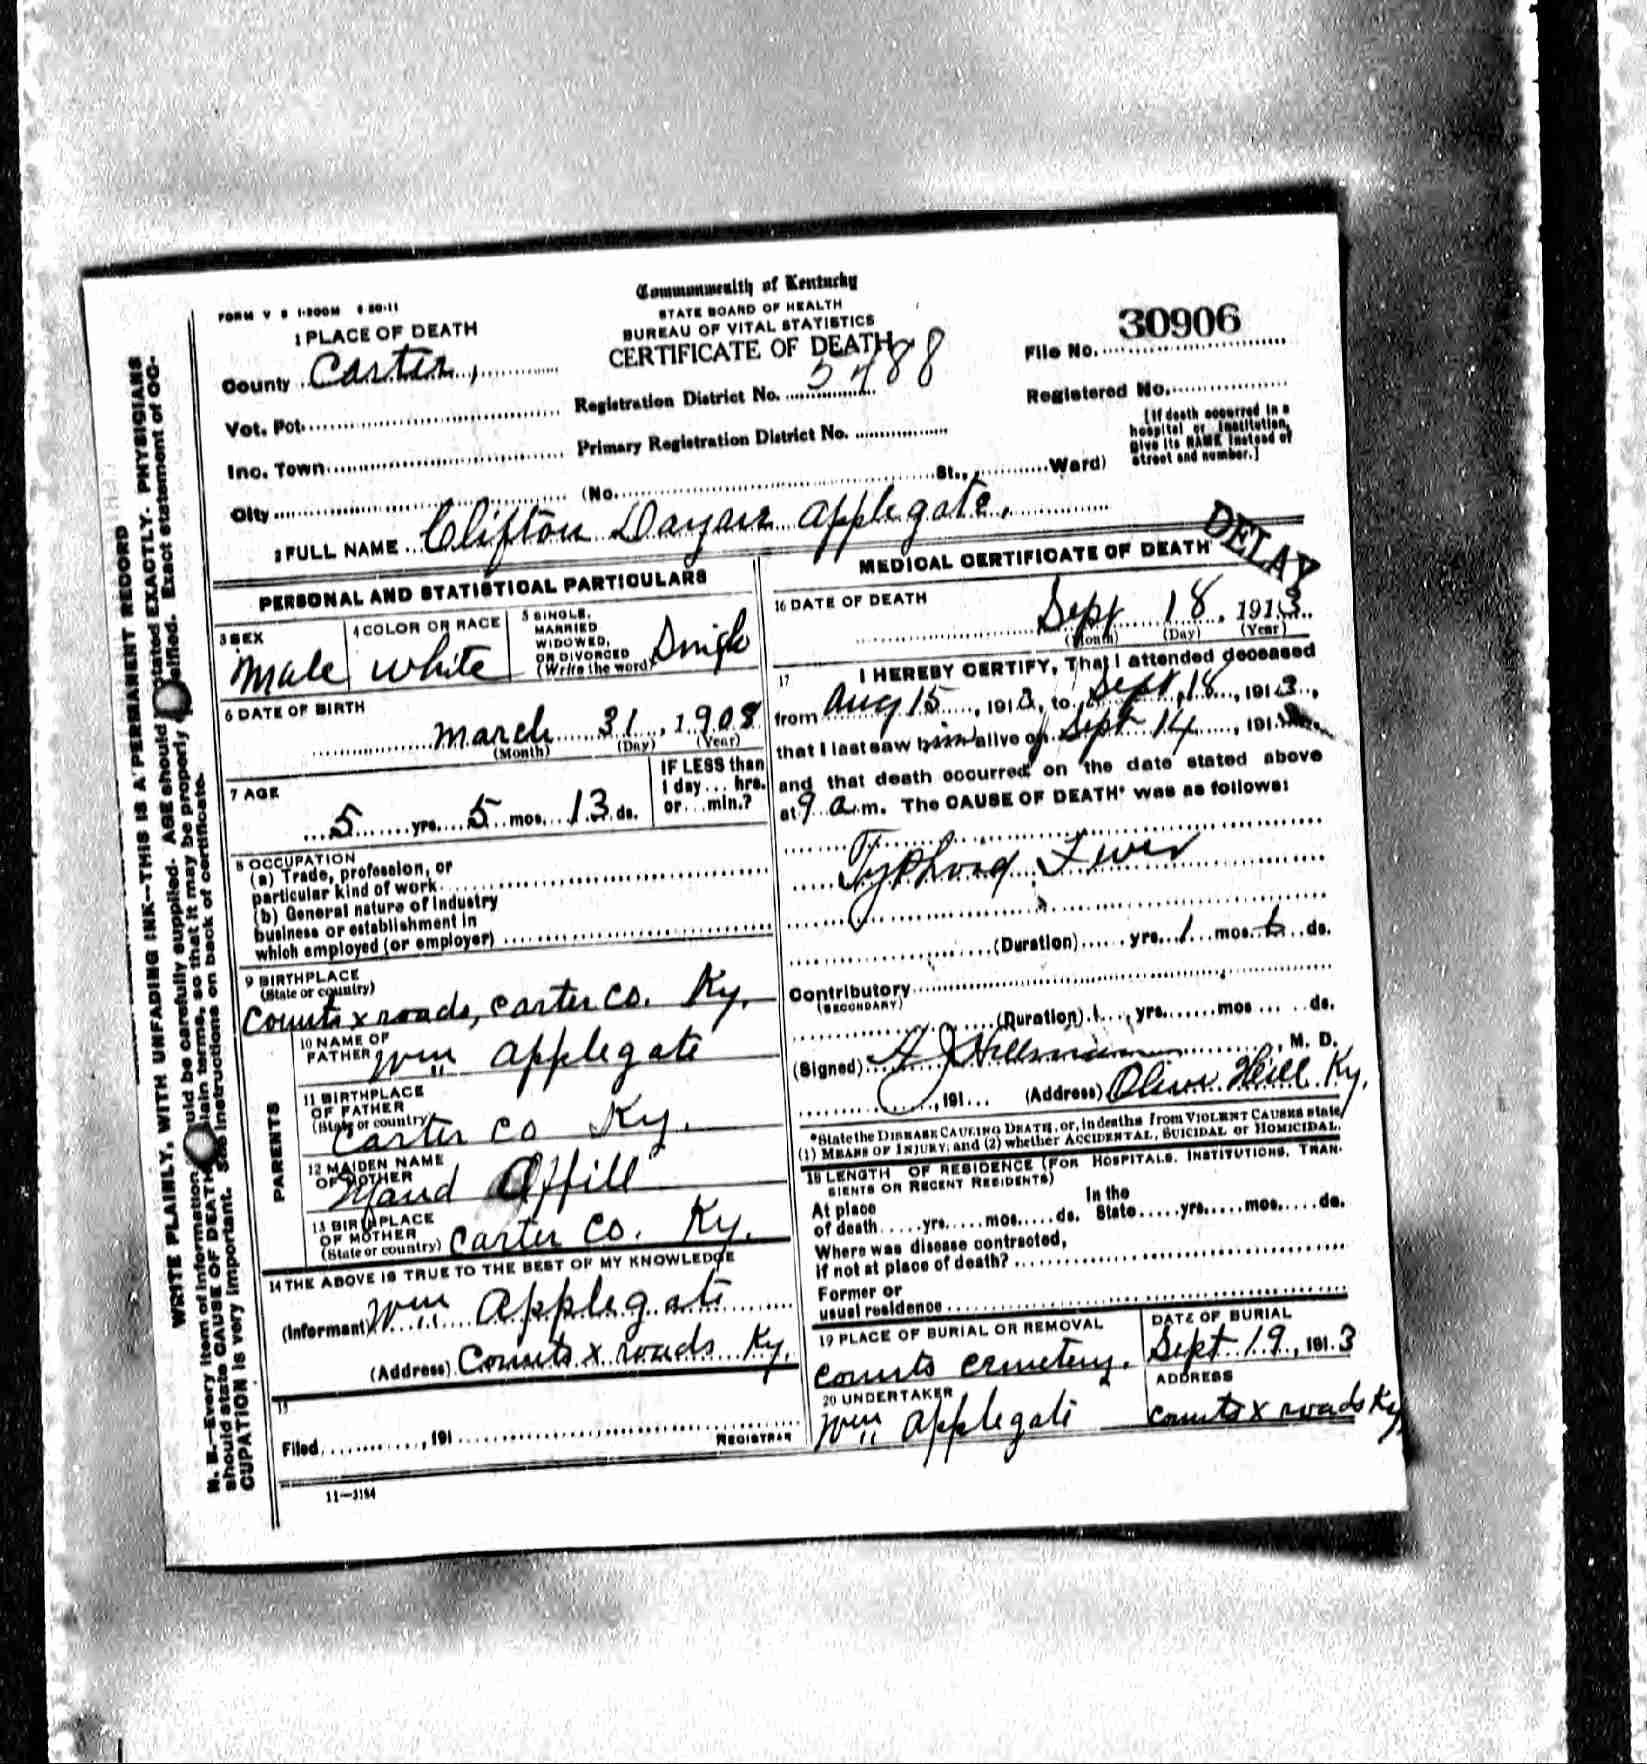 FORM V S 1-200M 6 20-11
Commonwealth of Kentucky
STATE BOARD OF HEALTH
BUREAU OF VITAL STATISTICS
CERTIFICATE OF DEATH
30906
File No.
Registered No.
[If death occurred in a hospital or institution, give its NAME instead of street and number.]
1 PLACE OF DEATH
County Carter,
Registration District No. 5488
Vot. Pct.
Primary Registration District No.
Inc. Town
City (No. St., Ward)
2 FULL NAME Clifton Applegate.
DELAY
PERSONAL AND STATISTICAL PARTICULARS
3 SEX
Male
4 COLOR OR RACE
White
5 SINGLE, MARRIED WIDOWED, OR DIVORCED (Write the word)
Single
6 DATE OF BIRTH
March 31, 1908
(Month) (Day) (Year)
7 AGE
5 yrs. 5 mos. 13 ds.
IF LESS than 1 day... hrs. or... min.?
8 OCCUPATION
(a) Trade, profession, or
particular kind of work
(b) General nature of industry
business or establishment in
which employed (or employer)
9 BIRTHPLACE
(State or country)
Counts x roads, Carter Co. Ky.
PARENTS
10 NAME OF FATHER
Wm Applegate
11 BIRTHPLACE OF FATHER (State or country)
Carter Co Ky.
12 MAIDEN NAME OF MOTHER
Maud
13 BIRTHPLACE OF MOTHER (State or country)
Carter Co. Ky.
14 THE ABOVE IS TRUE TO THE BEST OF MY KNOWLEDGE
(Informant) Wm Applegate
(Address) Counts x roads Ky.
15
Filed, 191
REGISTRAR
11—3184
MEDICAL CERTIFICATE OF DEATH
16 DATE OF DEATH
Sept 18, 1913
(Month) (Day) (Year)
17
I HEREBY CERTIFY, That I attended deceased
from Aug 15, 1913, to Sept 18, 1913,
that I last saw him alive on Sept 14, 191
and that death occurred, on the date stated above
at 9 a.m. The CAUSE OF DEATH* was as follows:
Typhoid Fever
(Duration) yrs. 1 mos. ds.
Contributory
(SECONDARY)
(Duration) yrs. mos ds.
(Signed) , M. D.
, 191 (Address) Olive Hill Ky.
*State the DISEASE CAUSING DEATH, or, in deaths from VIOLENT CAUSES state
(1) MEANS OF INJURY; and (2) whether ACCIDENTAL, SUICIDAL or HOMICIDAL.
18 LENGTH OF RESIDENCE (FOR HOSPITALS, INSTITUTIONS, TRAN-
SIENTS OR RECENT RESIDENTS)
At place In the
of death yrs. mos. ds. State yrs. mos. ds.
Where was disease contracted,
if not at place of death?
Former or
usual residence
19 PLACE OF BURIAL OR REMOVAL
Counts Cemetery.
DATE OF BURIAL
Sept 19, 1913
20 UNDERTAKER
Wm Applegate
ADDRESS
Counts x roads Ky
WRITE PLAINLY, WITH UNFADING INK—THIS IS A PERMANENT RECORD
N. B.—Every item of information should be carefully supplied. AGE should be stated EXACTLY. PHYSICIANS
should state CAUSE OF DEATH in plain terms, so that it may be properly classified. Exact statement of OC-
CUPATION is very important. See instructions on back of certificate.